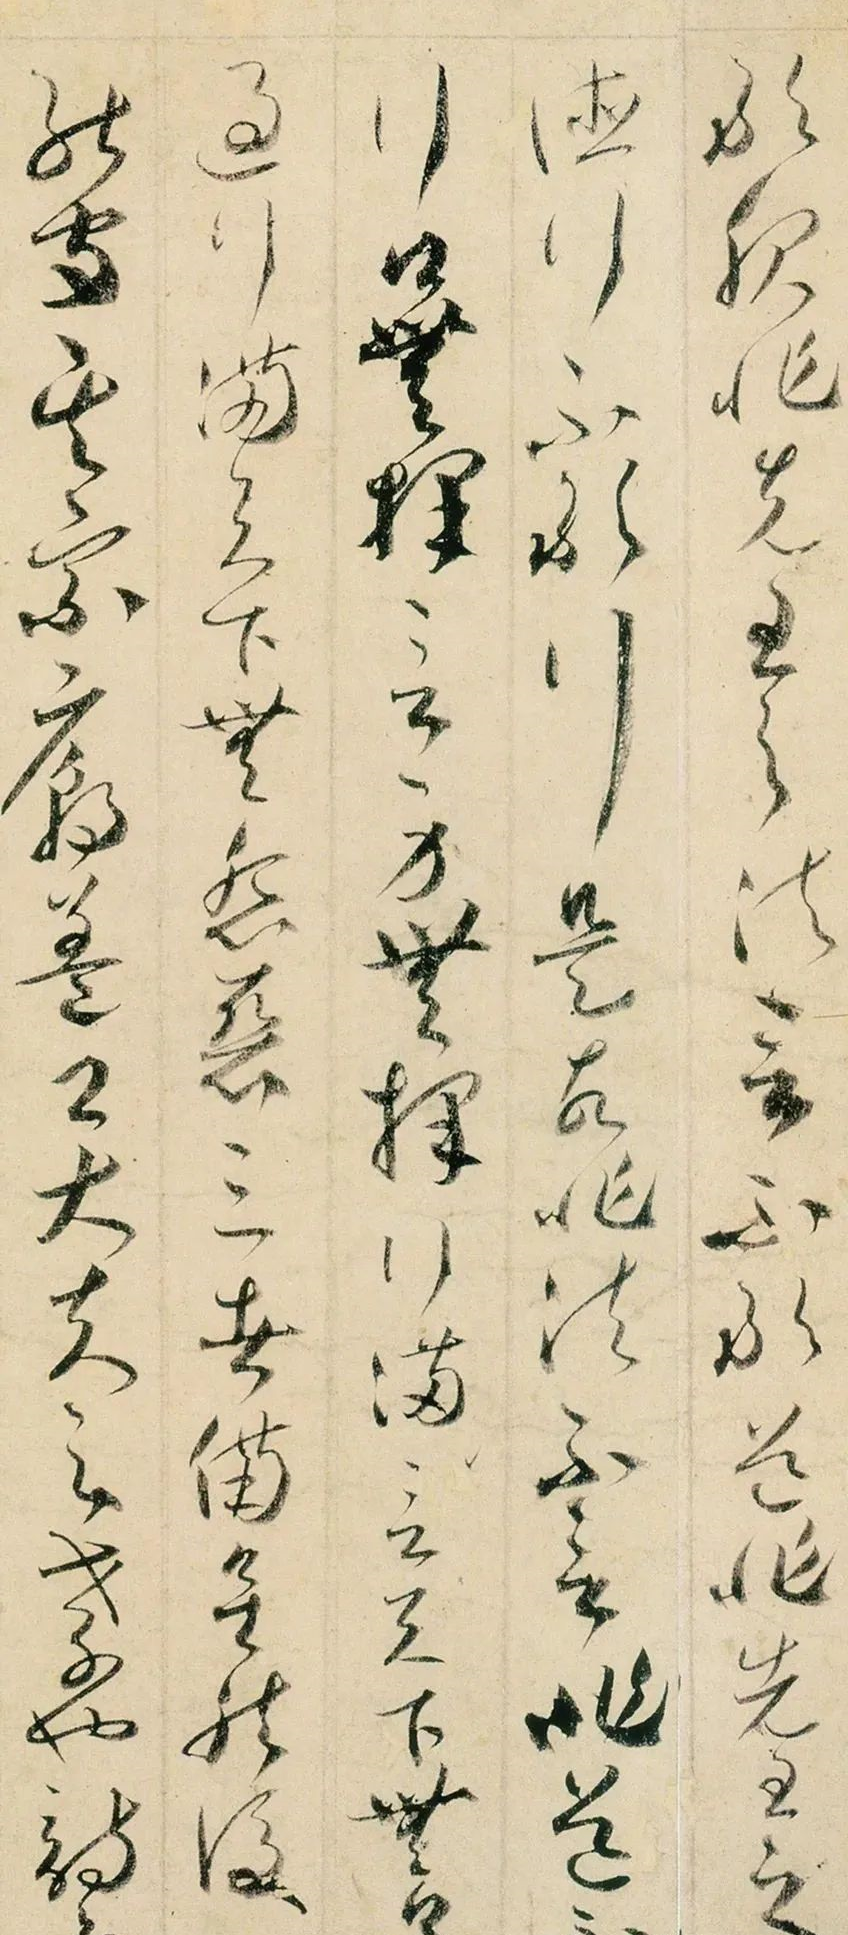 敢服非先王之法言不敢道非先王之
德行不敢行是故非法不言非道不
行口無擇言身無擇行滿言天下無口
過行滿天下無怨惡三者備矣然後
能守其宗廟蓋卿大夫之孝也詩